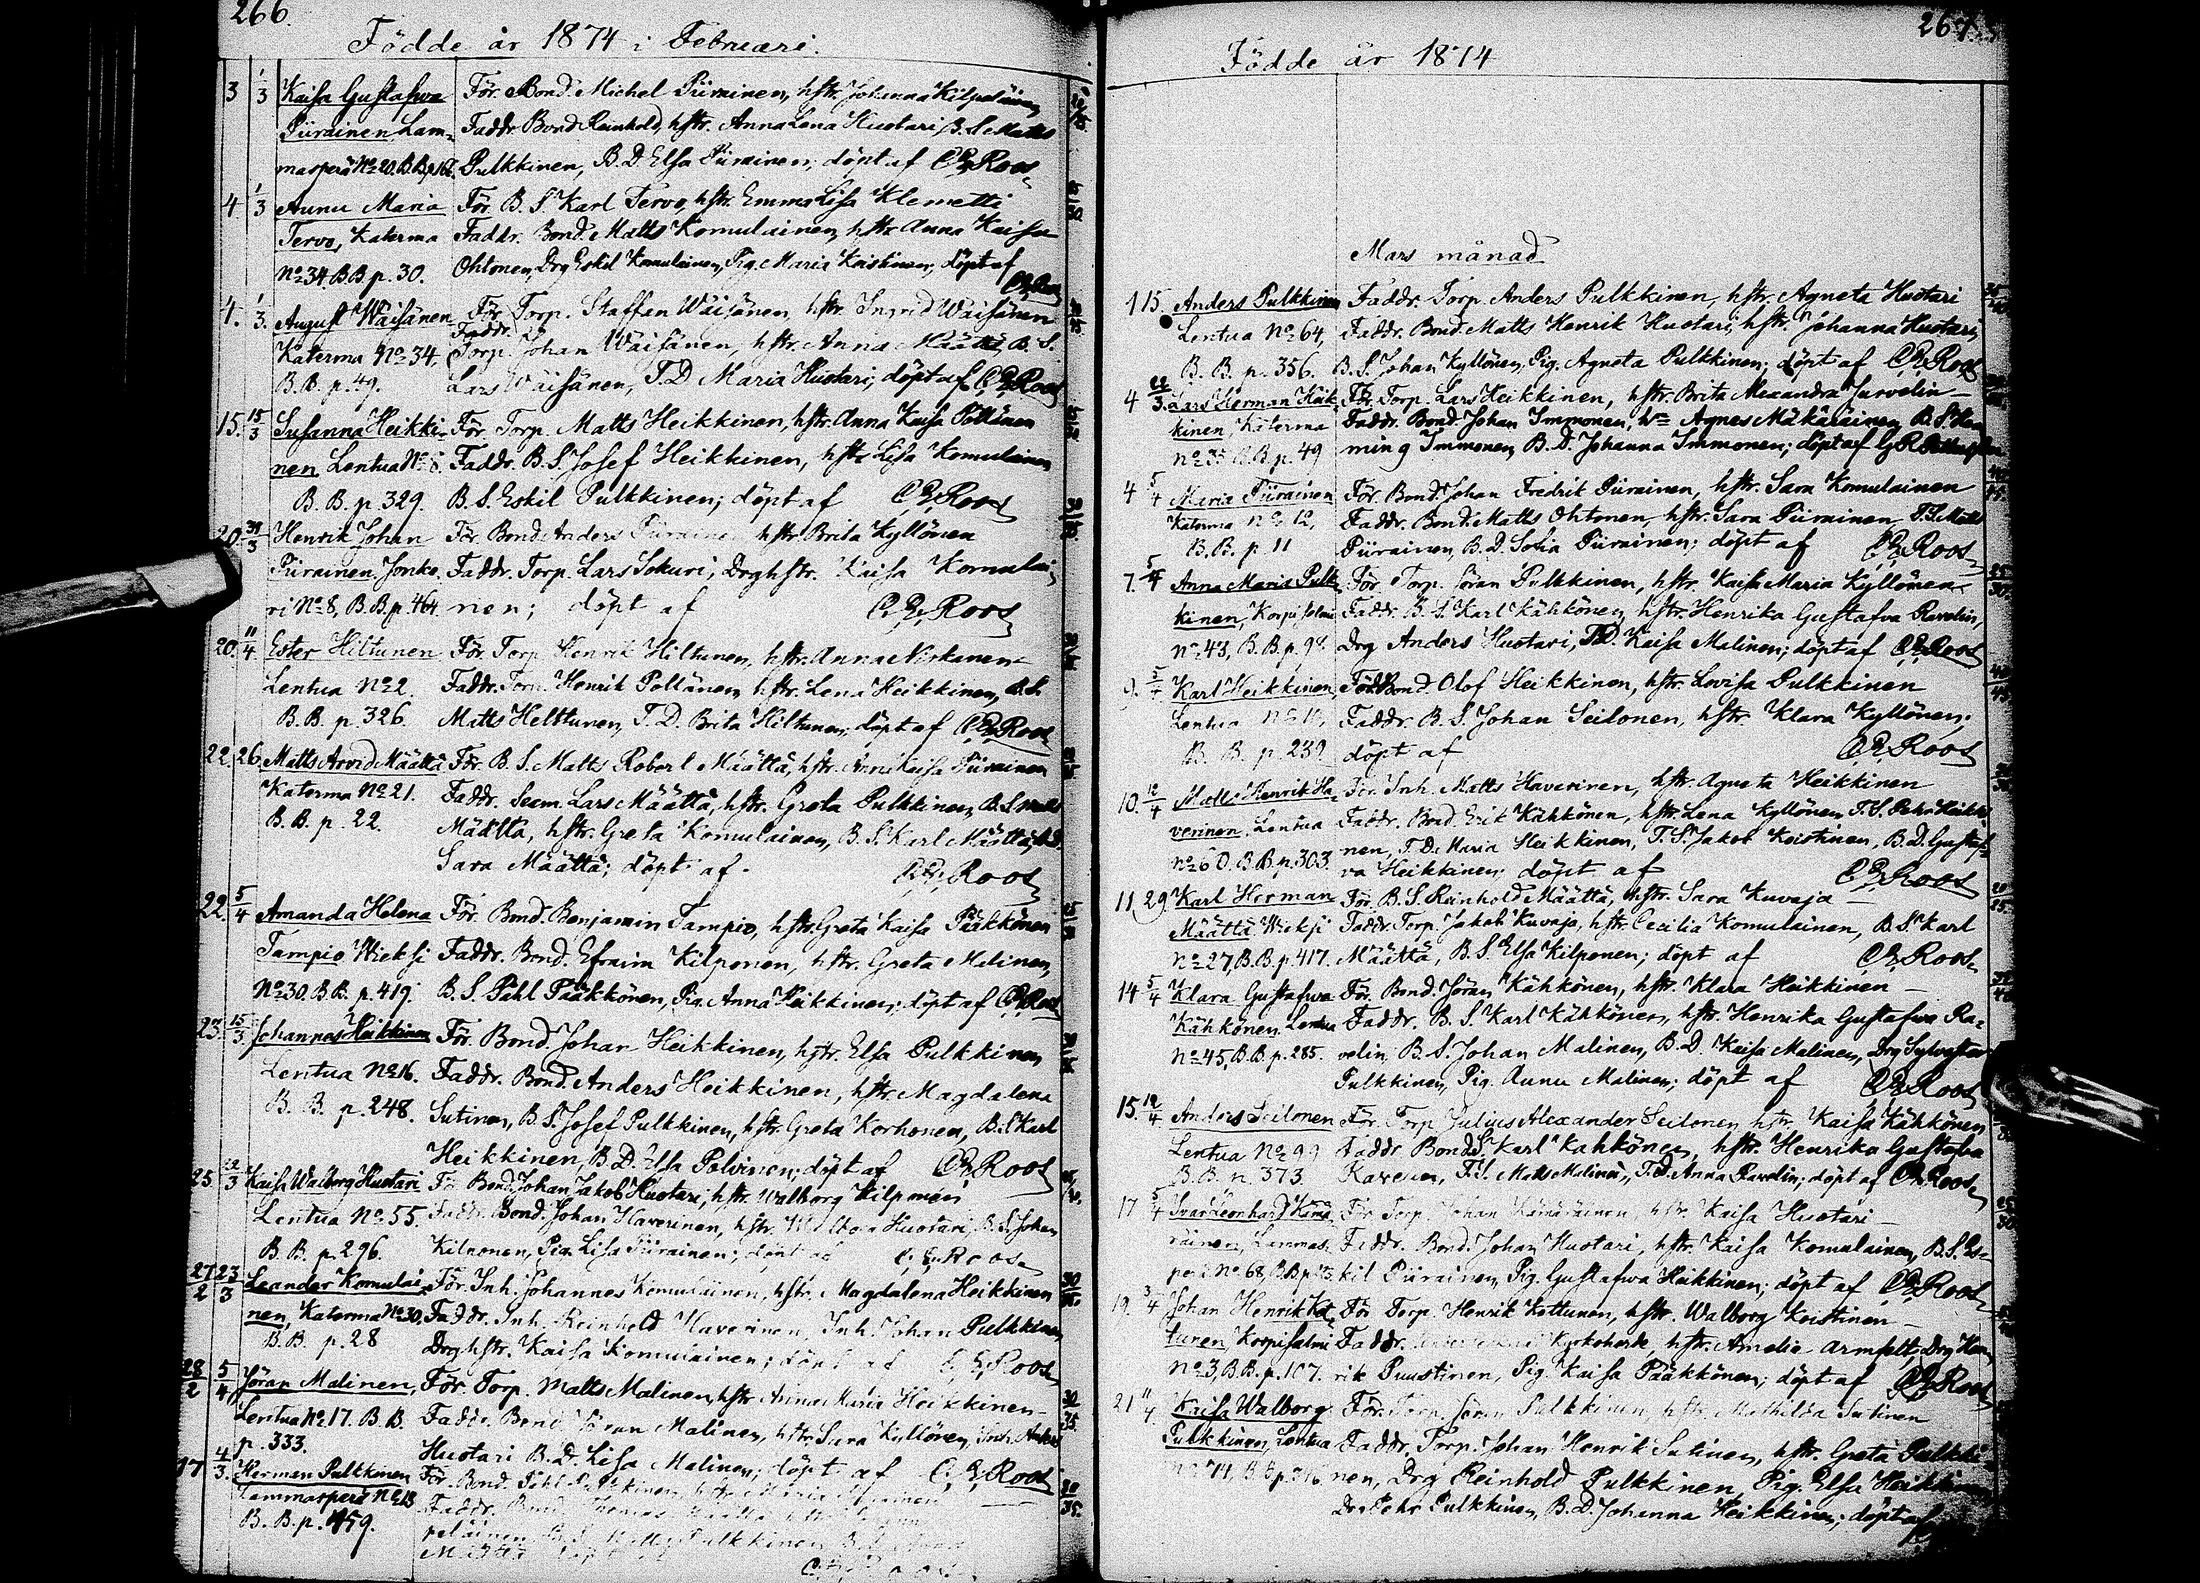 266.
Födde år 1874 i Februari.
3 1/3 Kaisa Gustafwa För. Bond. Michel Piirainen, hstr. Johanna Kilpeläinen
Piirainen Lam- Faddr. Bond Reinhold, hstr. Anna Lena Huotari, B. S. Matts
masperä No 20. B.B.p. Pulkkinen, B. D. Elsa Piirainen; döpt af C. E. Roos
4 1/3 Aunu Maria För. B. S. Karl Tervo, hstr. Emma Lisa Klemetti
Tervo, Katerma Faddr. Bond. Matts Komulainen, hstr. Anna Kaisa
No 34. B.B. p. 30. Ohtonen, Drg Eskil Komulainen, Pig. Maria Koistinen; döpt af
C. E. Roos
4. 1/3. August Wäisänen För. Torp. Staffan Wäisänen, hstr. Ingrid Wäisänen
Faddr.
Katerma No 34, Torp. Johan Wäisänen, hstr. Anna Määttä, B. S.
B. B. p. 49. Lars Wäisänen, T. D. Maria Huotari; döpt af C. E. Roos
15. 15/3 Susanna Heikki- För Torp. Matts Heikkinen, hstr. Anna Kaisa Pöllänen
nen Lentua No 8. Faddr. B. S. Josef Heikkinen, hstr. Lisa Komulainen
B. B. p. 329. B. S. Eskil Pulkkinen; döpt af C. E. Roos
20. 3 Henrik Johan För Bond Anders Piirainen hstr. Brita Kyllönen
Piirainen. Jonke- Faddr. Torp. Lars Sokuri, Drghstr. Kaisa Komulai-
ri No 8, B.B.p. 464 nen; döpt af C. E. Roos
20. 11/4 Ester Hiltunen För. Torp Henrik Hiltunen, hstr. Anna Kirkanen
Lentua No 2. Faddr. Torp. Henrik Pöllänen, hstr. Lena Heikkinen, B. S.
B. B. p. 326. Matts Helttunen, T. D. Brita Hiltunen; döpt af C. E. Roos
22. 26 Matts Arvid Määttä För. B. S. Matts Robert Määttä, hstr. Anna Kaisa Piirainen
Katerma No 21. Faddr. Lars Määttä, hstr. Greta Pulkkinen, B. S. Matts
B. B. p. 22. Määttä, hstr. Greta Komulainen, B. S. Karl Määttä,
Sara Määttä; döpt af. C. E. Roos
22. 5/4 Amanda Helena För. Bond. Benjamin Tampio, hstr. Greta Kaisa Pääkkönen
Tampio Wieksi Faddr. Bond. Efraim Kilponen, hstr. Greta Malinen,
No 30. B.B. p. 419. B. S. Påhl Pääkkönen, Pig. Anna Heikkinen; döpt af C. E. Roos
23. 15/3. Johannes Heikkinen För. Bond. Johan Heikkinen, hstr. Elsa Pulkkinen,
Lentua No 16. Faddr. Bond. Anders Heikkinen, hstr. Magdalena
B. B. p. 248. Sutinen, B. S. Josef Pulkkinen, hstr. Greta Korhonen, B. S. Karl
Heikkinen, B. D. Elsa Polvinen; döpt af C. E. Roos
25 22/3 Kaisa Walborg Huotari För Bond. Johan Jakob Huotari, hstr. Walborg Kilponen
Lentua No 55. Faddr. Bond. Johan Haverinen, hstr. Huotari, B. S. Johan
B. B. p. 296. Kilponen, Pig. Lisa Piirainen; döpt af C. E. Roos
27/2 23/3 Leander Komulai- För. Inh. Johannes Komulainen, hstr. Magdalena Heikkinen
nen, Katerma No 30, Faddr. Inh. Reinhold Haverinen, Inh. Johan Pulkkinen,
B.B. p. 28 Drghstr. Kaisa Komulainen; döpt af C. E. Roos
28/2 5/4 Jöran Malinen, För. Torp. Matts Malinen, hstr Anna Maria Heikkinen
Lentua No 17. B. B. Faddr. Bond Jöran Malinen, hstr. Sara Kyllönen, Inh.
p. 333. Huotari B. D. Lisa Malinen; döpt af C. E. Roos
17 4/3. Herman Pulkkinen För. Bond. Påhl Pulkkinen, hstr. Maria
Lammasperä No 13 Faddr. Bond.
B. B. p. 159. Pulkkinen
C. E. Roos
267.
Födde år 1874
Mars månad
1 15. Anders Pulkkinen Faddr. Torp. Anders Pulkkinen, hstr. Agneta Huotari
Lentua No 64, Faddr. Bond. Matts Henrik Huotari, hstr. Johanna Huotari,
B. B. p. 356. B. S. Johan Kyllönen, Pig. Agneta Pulkkinen; döpt af C. E. Roos
4 22/3. Lars Herman Heik- För. Torp. Lars Heikkinen, hstr. Brita Alexandra Jurvelin
kinen, Katerma Faddr. Bond. Johan Immonen, Agnes Mäkäräinen, B. S. Hen-
No 35 B. B p. 49 ming Immonen, B. D. Johanna Immonen; döpt af
4 5/4 Maria Piirainen För. Bond. Johan Fredrik Piirainen, hstr. Sara Komulainen
Katerma No 12, Faddr. Bond. Matts Ohtonen, hstr. Sara Piirainen, T. S. Matts
B. B. p. 11 Piirainen, B. D. Sofia Piirainen; döpt af C. E. Roos
7. 5/4 Anna Maria Pulk- För. Torp. Jöran Pulkkinen, hstr. Kaisa Maria Kyllönen
kinen, Korpisalmi Faddr. B. S. Karl Kähkönen, hstr. Henrika Gustafva Ravelin,
No 43, B. B. p. 98. Drg Anders Huotari, T. D. Kaisa Malinen; döpt af C. E. Roos
9. 5/4 Karl Heikkinen, För. Bond. Olof Heikkinen, hstr. Lovisa Pulkkinen
Lentua No 10, Faddr. B. S. Johan Seilonen, hstr Klara Kyllönen;
B. B. p. 239 döpt af C. E. Roos
10. 12/4 Matts Henrik Ha- För. Inh. Matts Haverinen, hstr. Agneta Heikkinen
verinen, Lentua Faddr. Bond. Erik Kähkönen, hstr. Lena Kyllönen, T. S. Petr Heikki-
No 60. B. B. p. 303. nen, T. D. Maria Heikkinen, T. S. Jakob Koistinen, B. D. Gustaf-
va Heikkinen; döpt af C. E. Roos
11 29 Karl Herman För. B. S. Reinhold Määttä, hstr. Sara Kuvaja
Määttä Wieksi Faddr. Torp. Jakob Kuvaja, hstr. Cecilia Komulainen, B. S. Karl
No 27, B. B. p. 417. Määttä, B. S. Elsa Kilponen; döpt af C. E. Roos
14 5/4 Klara Gustafwa För. Bond. Jöran Kähkönen, hstr. Klara Heikkinen
Kähkönen Lentua Faddr. B. S. Karl Kähkönen, hstr. Henrika Gustafwa Ra-
No 45, B. B. p. 285. velin, B. S. Johan Malinen, B. D. Kaisa Malinen, Drg Sylvester
Pulkkinen, Pig. Aunu Malinen; döpt af C. E. Roos
15. 12/4 Anders Seilonen För. Torp. Julius Alexander Seilonen, hstr. Kaisa Kähkönen
Lentua No 99 Faddr Bond. S. Karl Kähkönen, hstr. Henrika Gustafva
B. B. p. 373. T. S. Matts Malinen, T. D. Anna Ravelin; döpt af C. E. Roos
17 5/4 Ivar Leonhard Kämä- För Torp. Johan Kämäräinen, hstr. Kaisa Huotari
räinen, Lammas- Faddr. Bond. Johan Huotari, hstr. Kaisa Komulainen, B. S. Es-
perä No 68, B. B. p. kil Piirainen, Pig. Gustafwa Heikkinen; döpt af C. E. Roos
19. 3/4 Johan Henrik Kot- För Torp. Henrik Kottunen, hstr. Walborg Koistinen
tunen Korpisalmi Faddr. Kyrkoherde, hstr. Amelie Armfelt, Drg Hen-
No 3, B. B. p. 107. rik Puustinen, Pig. Kaisa Pääkkönen; döpt af C. E. Roos
21 11/4 Kaisa Walborg För. Torp. Jöran Pulkkinen, hstr. Mathilda Sutinen
Pulkkinen, Lentua Faddr. Torp. Johan Henrik Sutinen, hstr. Greta Pulkki-
No 74, B. B. p. nen, Drg Reinhold Pulkkinen, Pig. Elsa Heikkinen,
Drg Pehr Pulkkinen, B. D. Johanna Heikkinen; döpt af